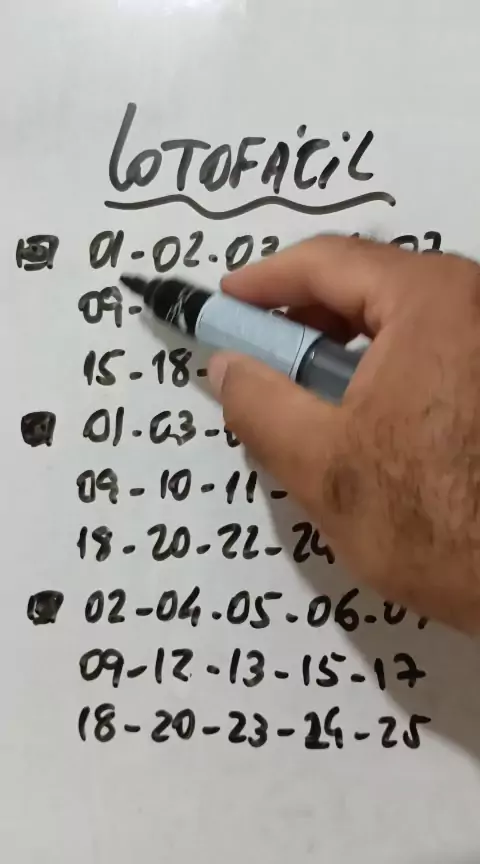 LOTOFÁCIL
01-02.03 07
09-
15-18-
01.03-
09-10-11-
18-20-22-24
02-04.05-06-
09-12-13-15-17
18-20-23-24-25